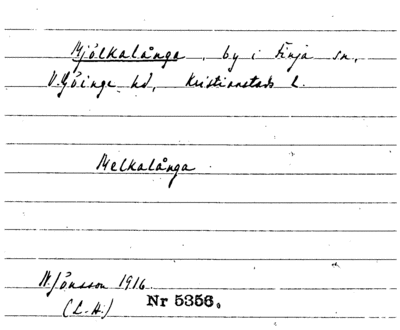 Mjölkalånga, by i Finja sn,
V. Göinge hd, Kristianstads l.
Melkalånga
N. Jönsson 1916
(L.H.) Nr 5356.